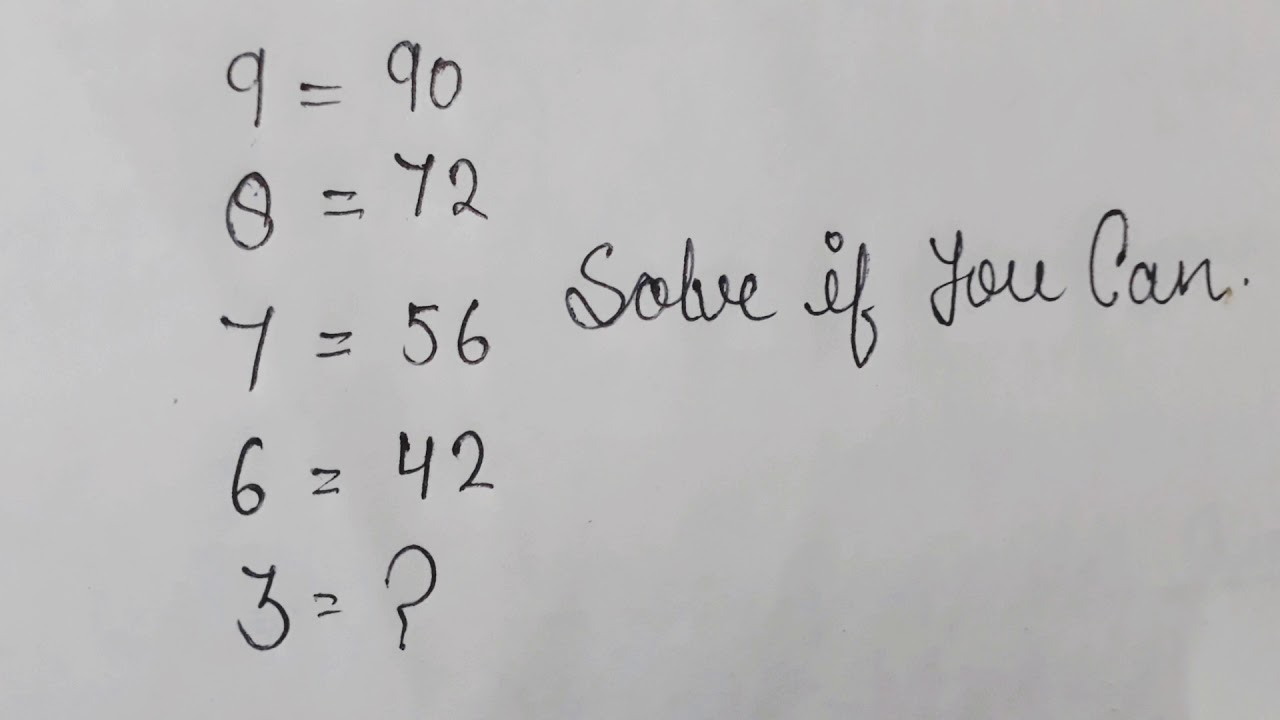 9 = 90
8 = 72
7 = 56
6 = 42
3 = ?
Solve if You Can.